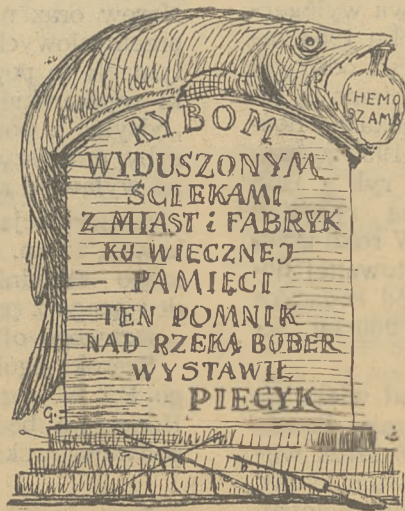 CHEMO
SZAMB
RYBOM
WYDUSZONYM
ŚCIEKAMI
Z MIAST i FABRYK
KU WIECZNEJ
PAMIĘCI
TEN POMNIK
NAD RZEKĄ BOBER
WYSTAWIŁ
PIECYK
G.